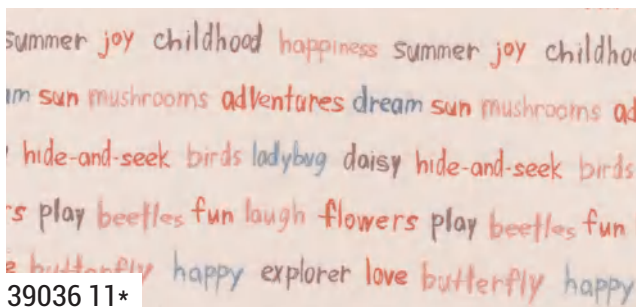 summer joy childhood happiness summer joy childho
m sun mushrooms adventures dream sun mushrooms ad
hide-and-seek birds ladybug daisy hide-and-seek birds
s play beetles fun laugh flowers play beetles fun
e butterfly happy explorer love butterfly happy
39036 11*